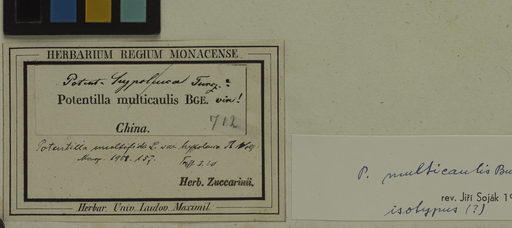 HERBARIUM REGIUM MONACENSE.
Potent. hypoleuca Turcz.?
Potentilla multicaulis BGE. vix!
China.
712
Potentilla multifida L. var. hypoleuca Th. Wolf
1908. 157.
Herb. Zuccarinii.
Herbar. Univ. Ludov. Maximil.
P. multicaulis Bu
rev. Jiří Soják 19
isotypus (?)